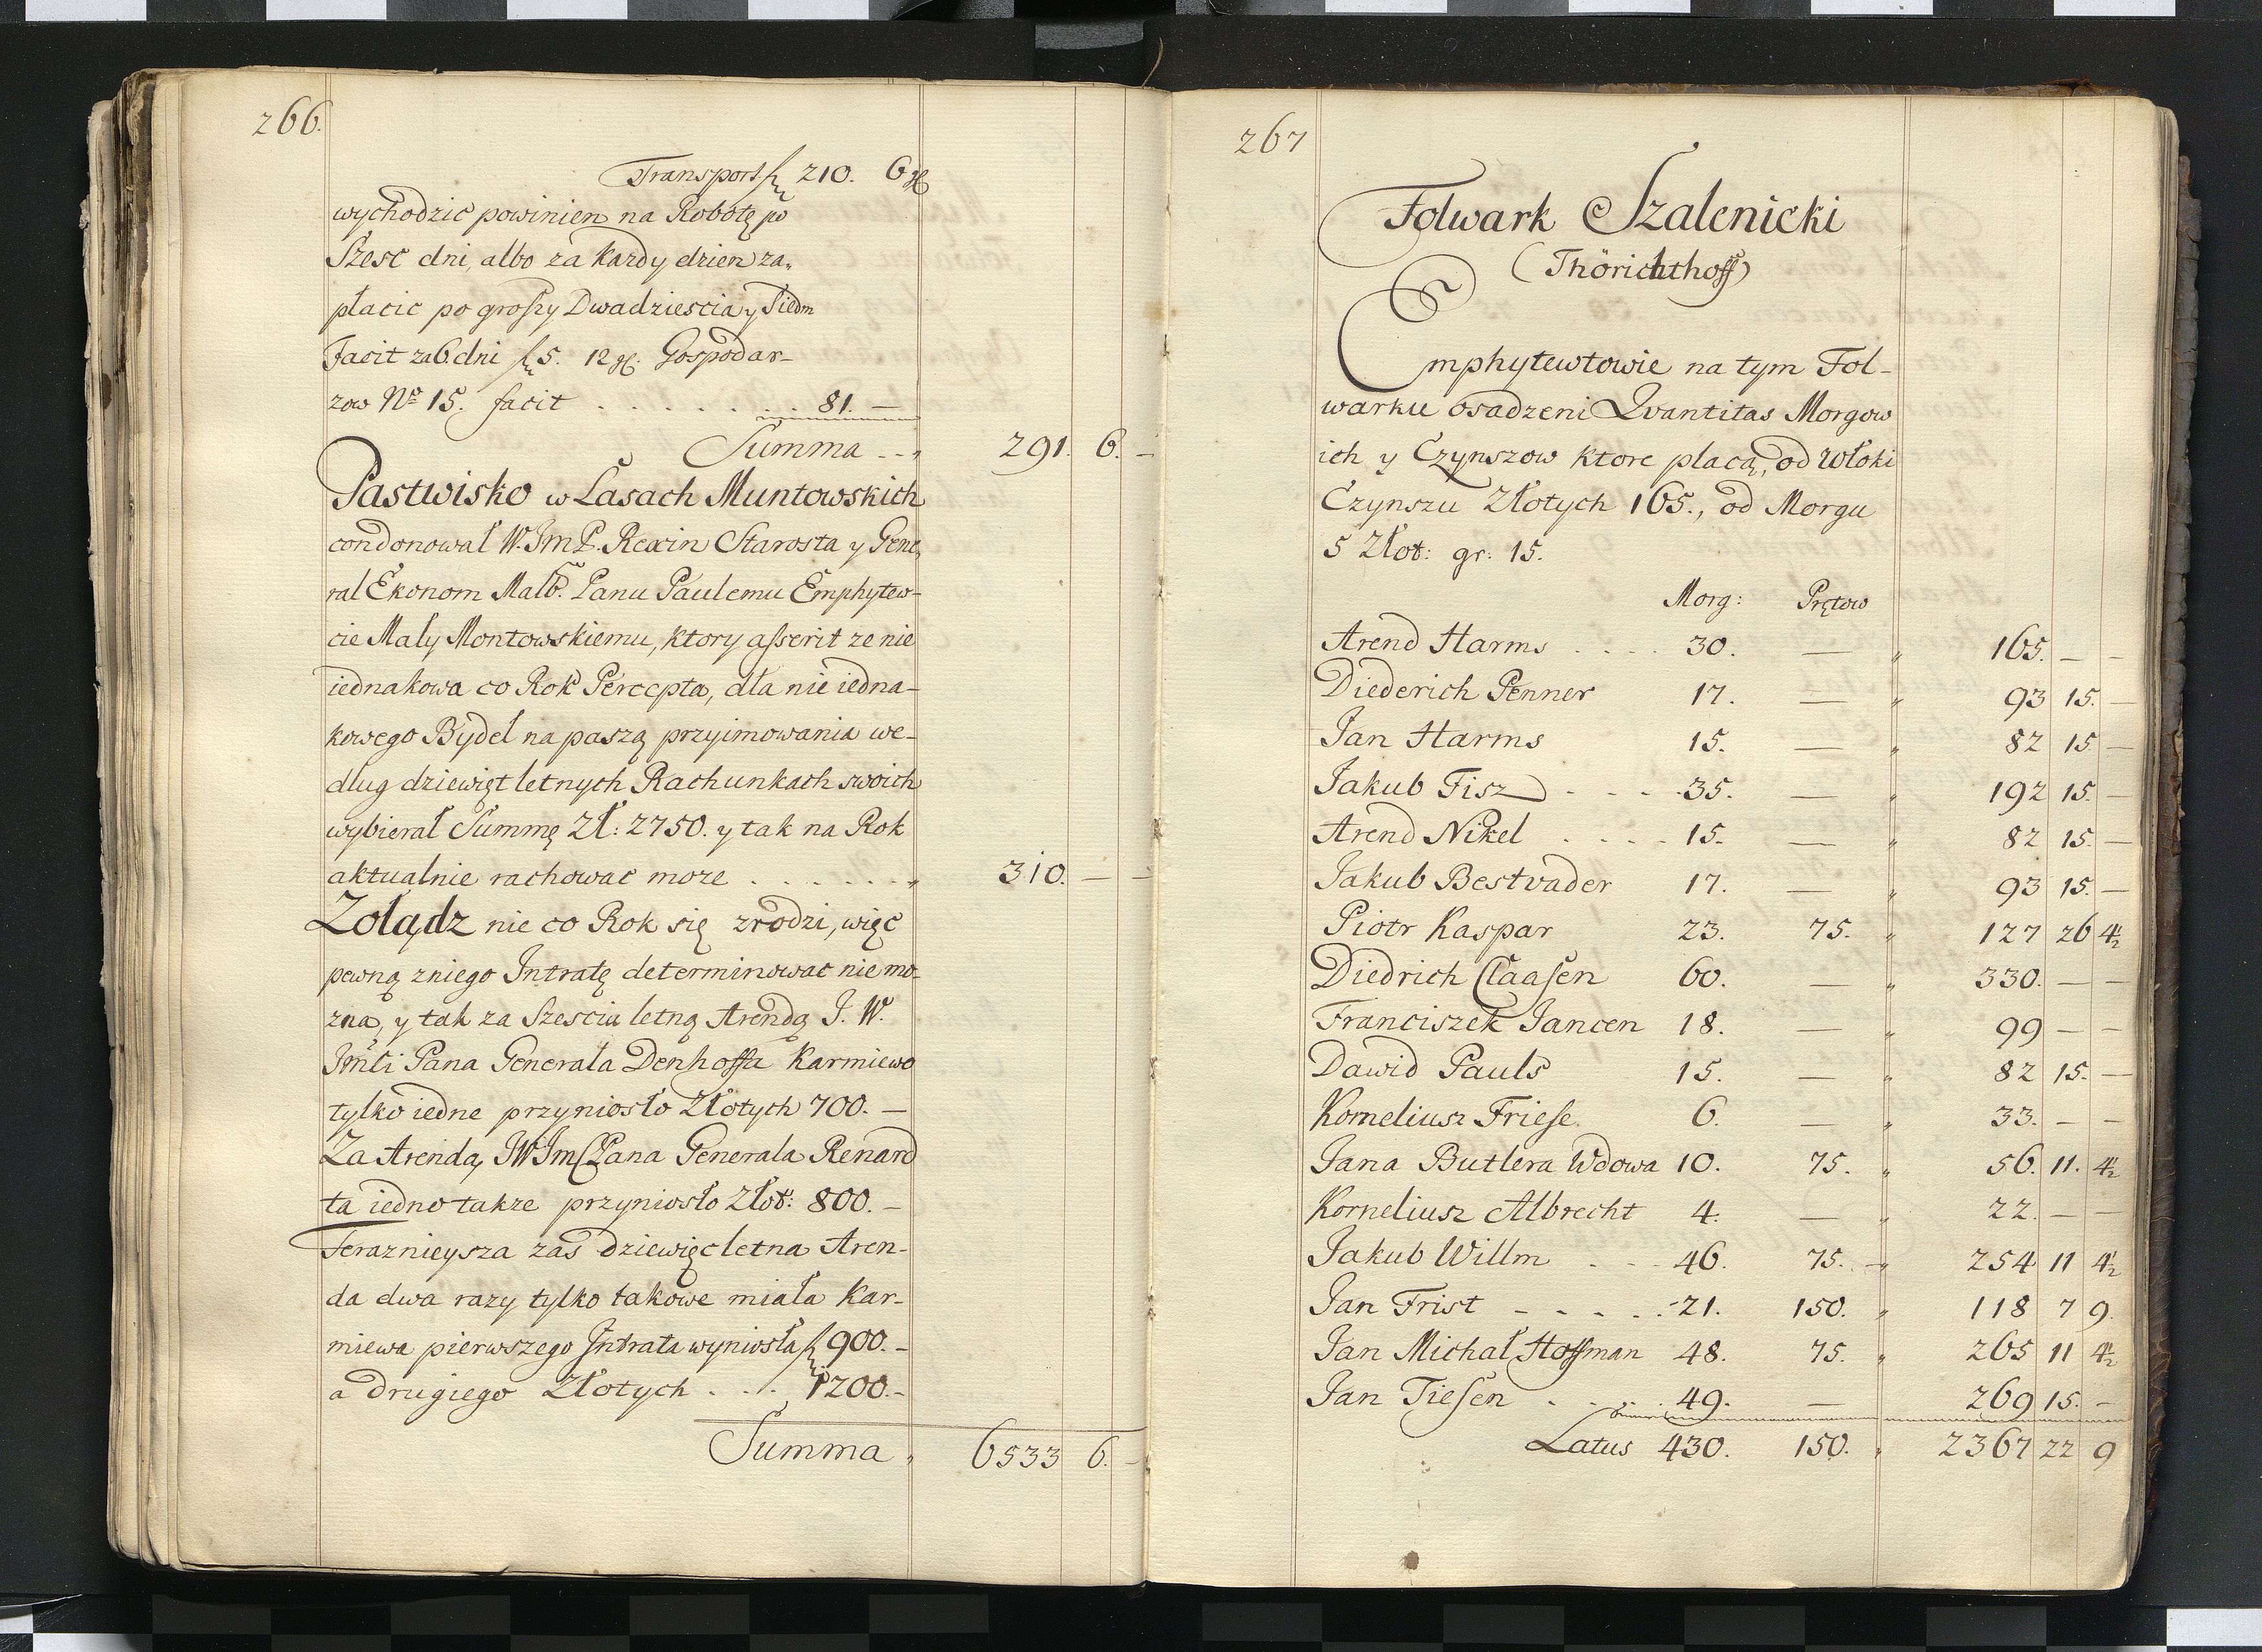 266.
Transport f 210. 6 gl
wychodzic powinien na Robotę po
Szesc dni, albo za kazdy dzien za„
płacic po groszy Dwadziescia y Siedm
Facit za 6 dni f 5. 12 gl. Gospodar-
zow No 15. facit . . . . . . . . 81. —
Summa - - „ 291. 6. —
Pastwisko w Lasach Muntowskich
condonował W. Jm P. Rexin Starosta y Gene„
ral Ekonom Malb. Panu Paulemu Emphytew-
cie Mały Montowskiemu, ktory asserit ze nie
iednakowa co Rok Percepta, dla nie iedna-
kowego Bydeł na paszą przyimowania we-
dług dziewięt letnych Rachunkach swoich
wybierał Summę Zł: 2750. y tak na Rok
aktualnie rachowac moze . . . . . . . „ 310. — —
Zołądz nie co Rok się zrodzi, więc
pewną zniego Intratę determinowac nie mo-
zna, y tak za Szescia letną Arendą J. W.
Jmći Pana Generała Denhoffa Karmiewo
tylko iedne przyniosło Złotych 700. —
Za Arendą JW Jmć Pana Generala Renard
ta iedno takze przyniosło Złot: 800. —
Teraznieysza zas dziewięcletna Aren-
da dwa razy tylko takowe miała Kar-
miewa pierwszego Intrata wyniosła f 900. —
a drugiego Złotych . . . . 1200. —
Summa „ 6533 6. —
267
Folwark Szalenicki
(Thörichthoff)
Emphytewtowie na tym Fol-
warku osadzeni Qvantitas Morgow
ich y Czynszow ktore płacą, od Włoki
Czynszu Złotych 165., od Morgu
5 Złot: gr: 15.
Morg: Prętow
Arend Harms . . . . 30. — „ 165. — —
Diederich Penner 17. — „ 93 15. —
Jan Harms 15. — „ 82 15 —
Jakub Fisz - - - - 35. — „ 192 15. —
Arend Nikel . . . . 15. — „ 82 15. —
Jakub Bestvader 17. — „ 93 15. —
Piotr Kaspar 23. 75. „ 127 26 4½
Diedrich Claasen 60. — „ 330. — —
Franciszek Jancen 18. — „ 99 — —
Dawid Pauls 15. — „ 82 15. —
Korneliusz Friese 6. — „ 33. — —
Jana Butlera Wdowa 10. 75. „ 56. 11. 4½
Korneliusz Albrecht 4. — „ 22. — —
Jakub Willm . - - 46. 75. - „ 254 11 4½
Jan Frist - - - - - 21. 150. „ 118 7 9.
Jan Michał Hoffman 48. 75. „ 265 11 4½
Jan Tiesen . . . . 49. — 269 15. —
Latus 430. 150. „ 2367 22 9